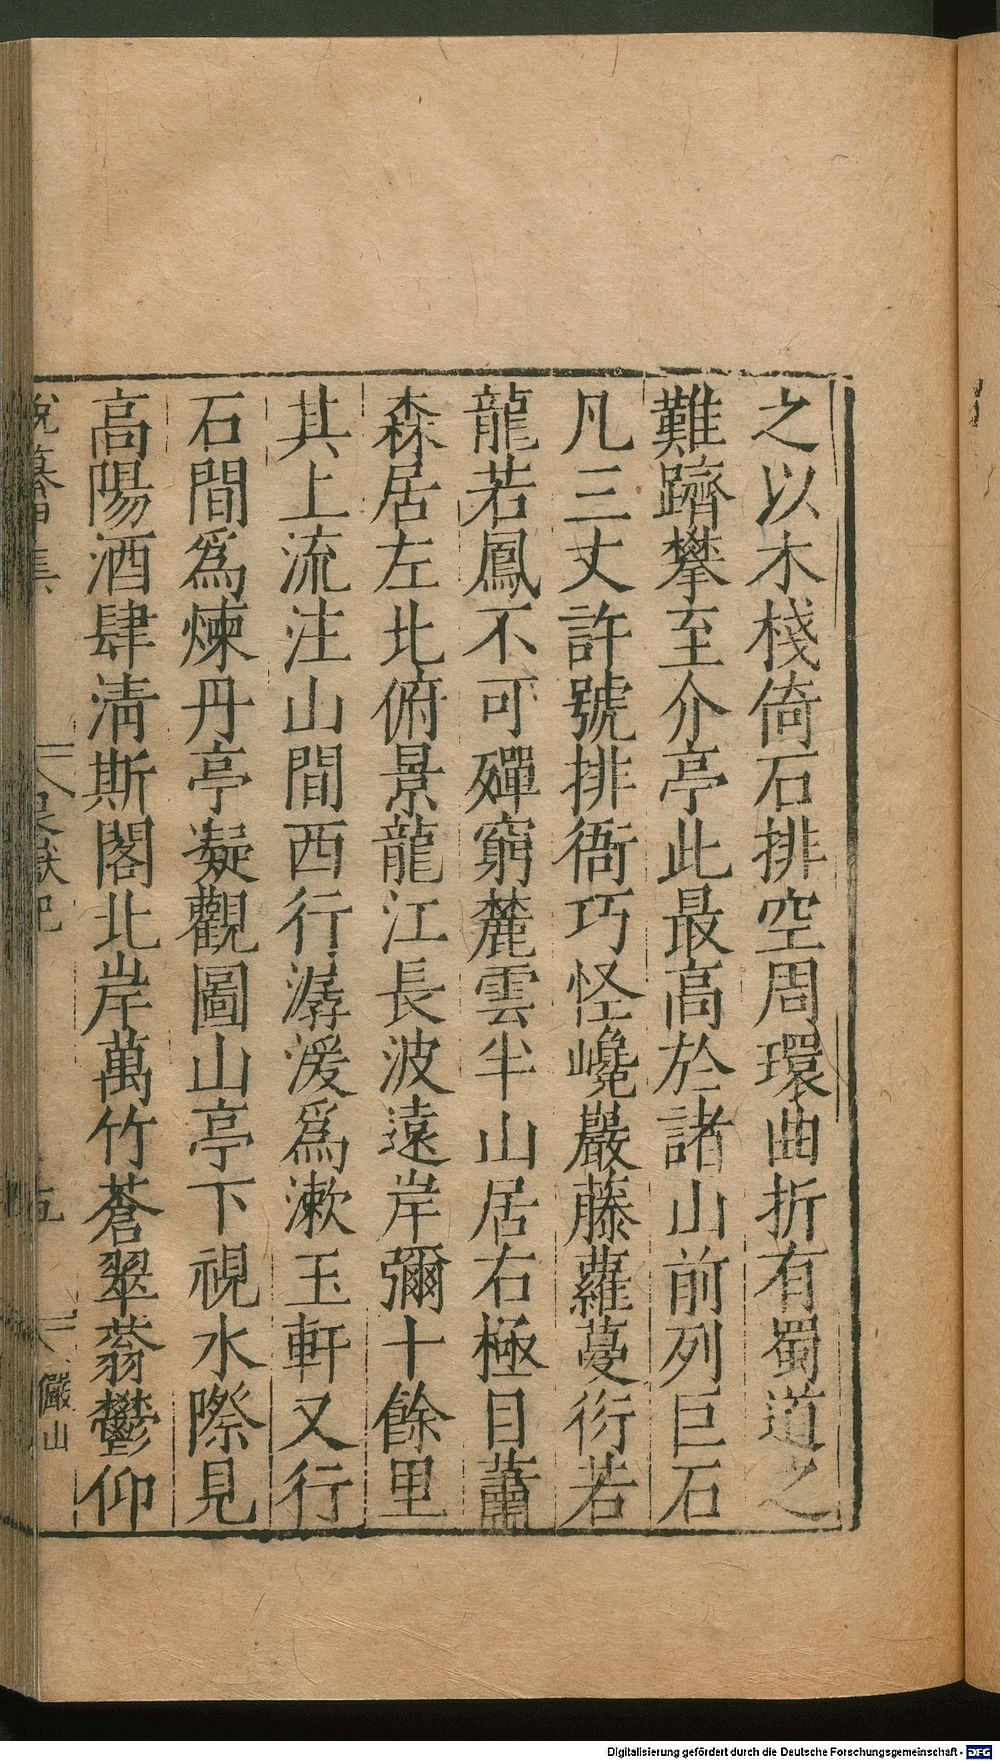 之以木棧倚石排空周環曲折有蜀道之
難躋攀至介亭此最高於諸山前列巨石
凡三丈許號排衙巧怪巉巖藤蘿蔓衍若
龍若鳳不可殫窮麓雲半山居右極目蕭
森居左北俯景龍江長波遠岸彌十餘里
其上流注山間西行潺湲爲漱玉軒又行
石間爲煉丹亭凝觀圖山亭下視水際見
高陽酒肆清斯閣北岸萬竹蒼翠蓊鬱仰
說纂甲集
艮嶽記
五
儼山
Digitalisierung gefördert durch die Deutsche Forschungsgemeinschaft - DFG